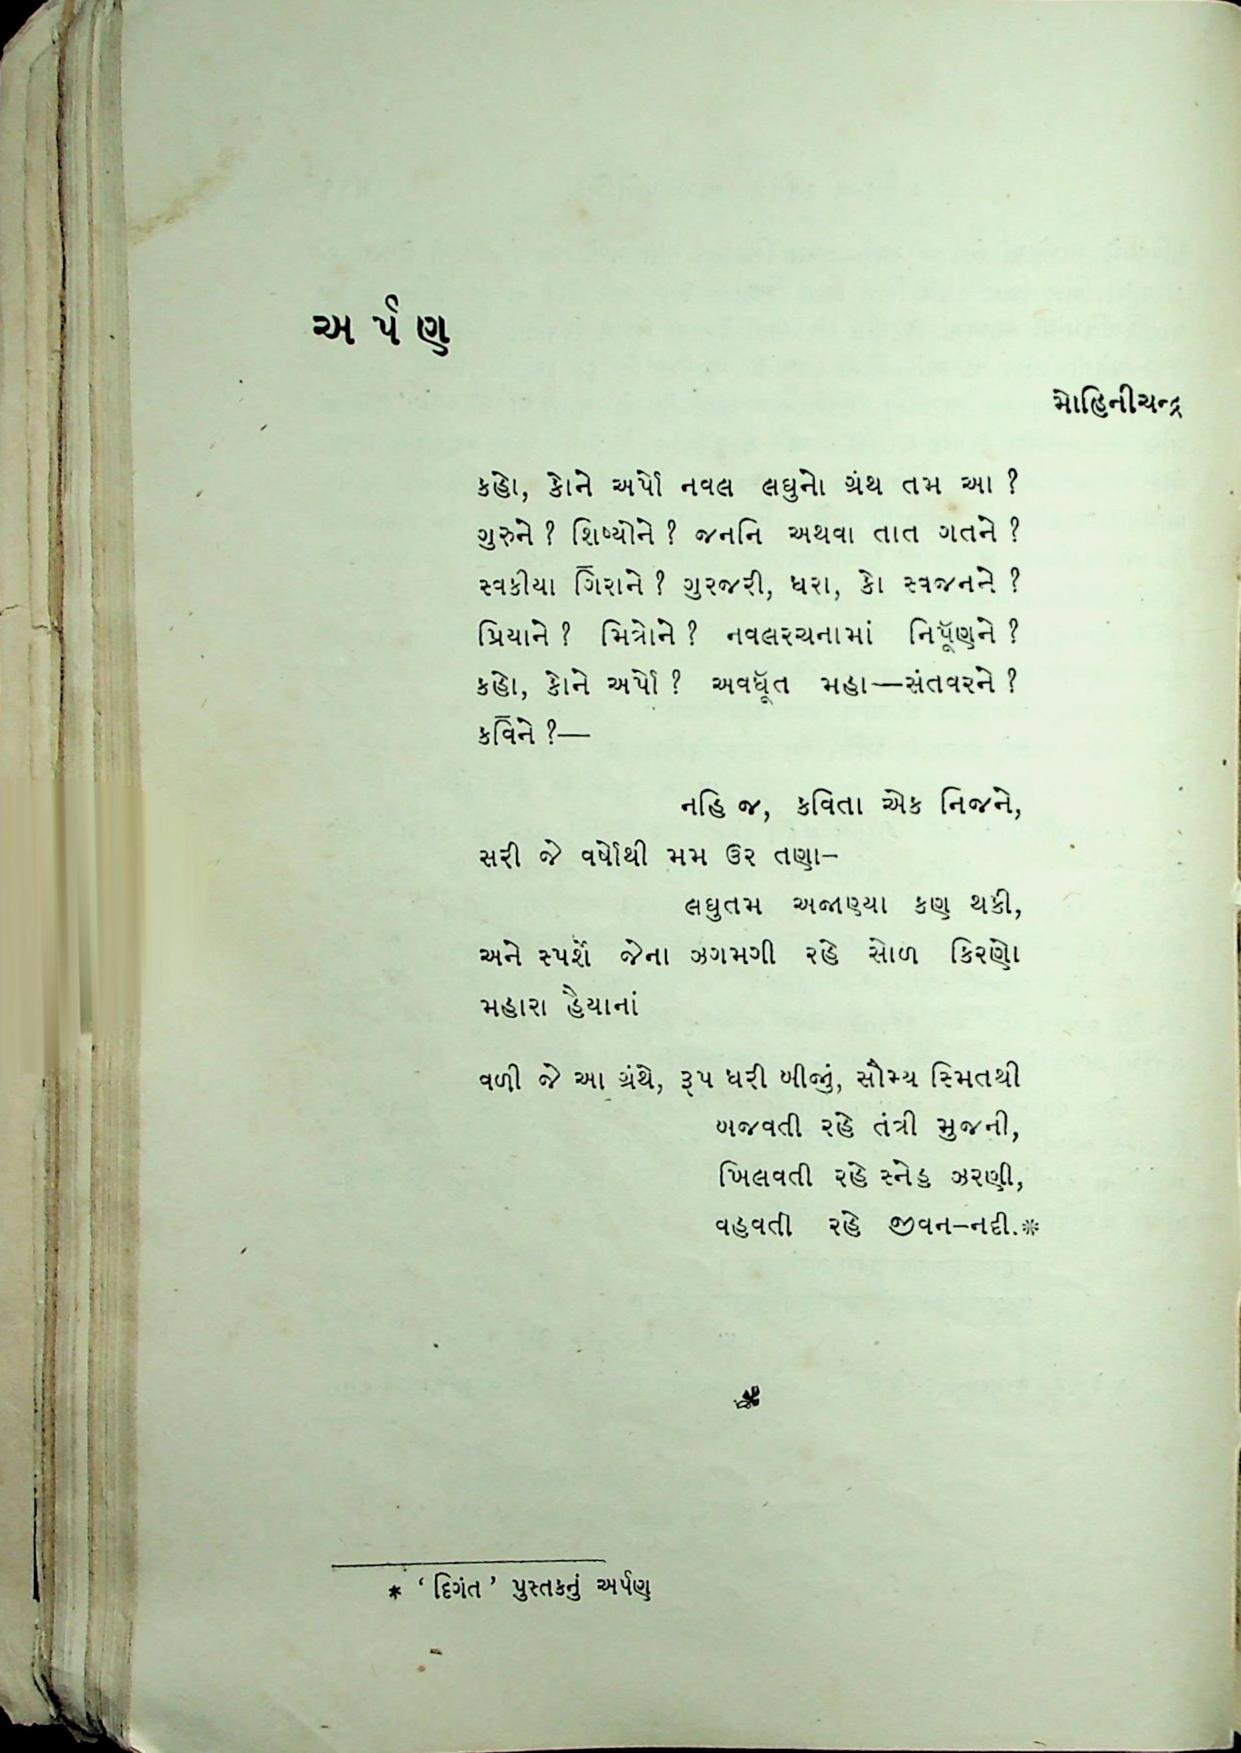 અર્પણ
મોહિનીચન્દ્ર
કહો, કોને અર્પો નવલ લઘુનો ગ્રંથ તમ આ ?
ગુરુને ? શિષ્યોને ? જનનિ અથવા તાત ગતને ?
સ્વકીયા ગિરાને ? ગુરજરી, ધરા, કો સ્વજનને ?
પ્રિયાને ? મિત્રોને ? નવલરચનામાં નિપૂણને ?
કહો, કોને અર્પો ? અવધૂત મહા—સંતવરને ?
કવિને ?—
નહિ જ, કવિતા એક નિજને,
સરી જે વર્ષોથી મમ ઉર તણા–
લઘુતમ અજાણ્યા કણ થકી,
અને સ્પર્શે જેના ઝગમગી રહે સોળ કિરણો
મહારા હૈયાનાં
વળી જે આ ગ્રંથે, રૂપ ધરી બીજું, સૌમ્ય સ્મિતથી
બજવતી રહે તંત્રી મુજની,
ખિલવતી રહે સ્નેહ ઝરણી,
વહવતી રહે જીવન–નદી.*
* ‘દિગંત’ પુસ્તકનું અર્પણ